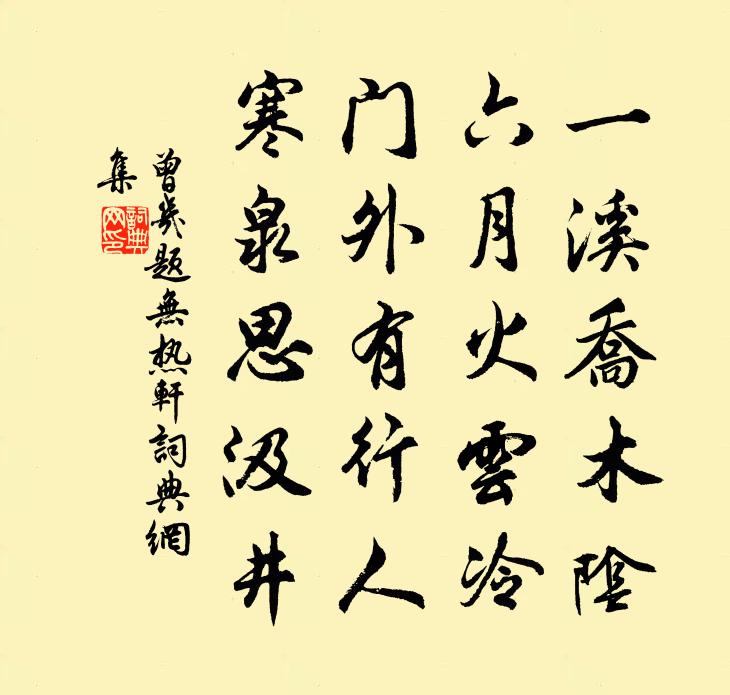 一溪喬木陰
六月火雲冷
門外有行人
寒泉思汲井
曾幾題無熱軒詞典網
集
詞典網印